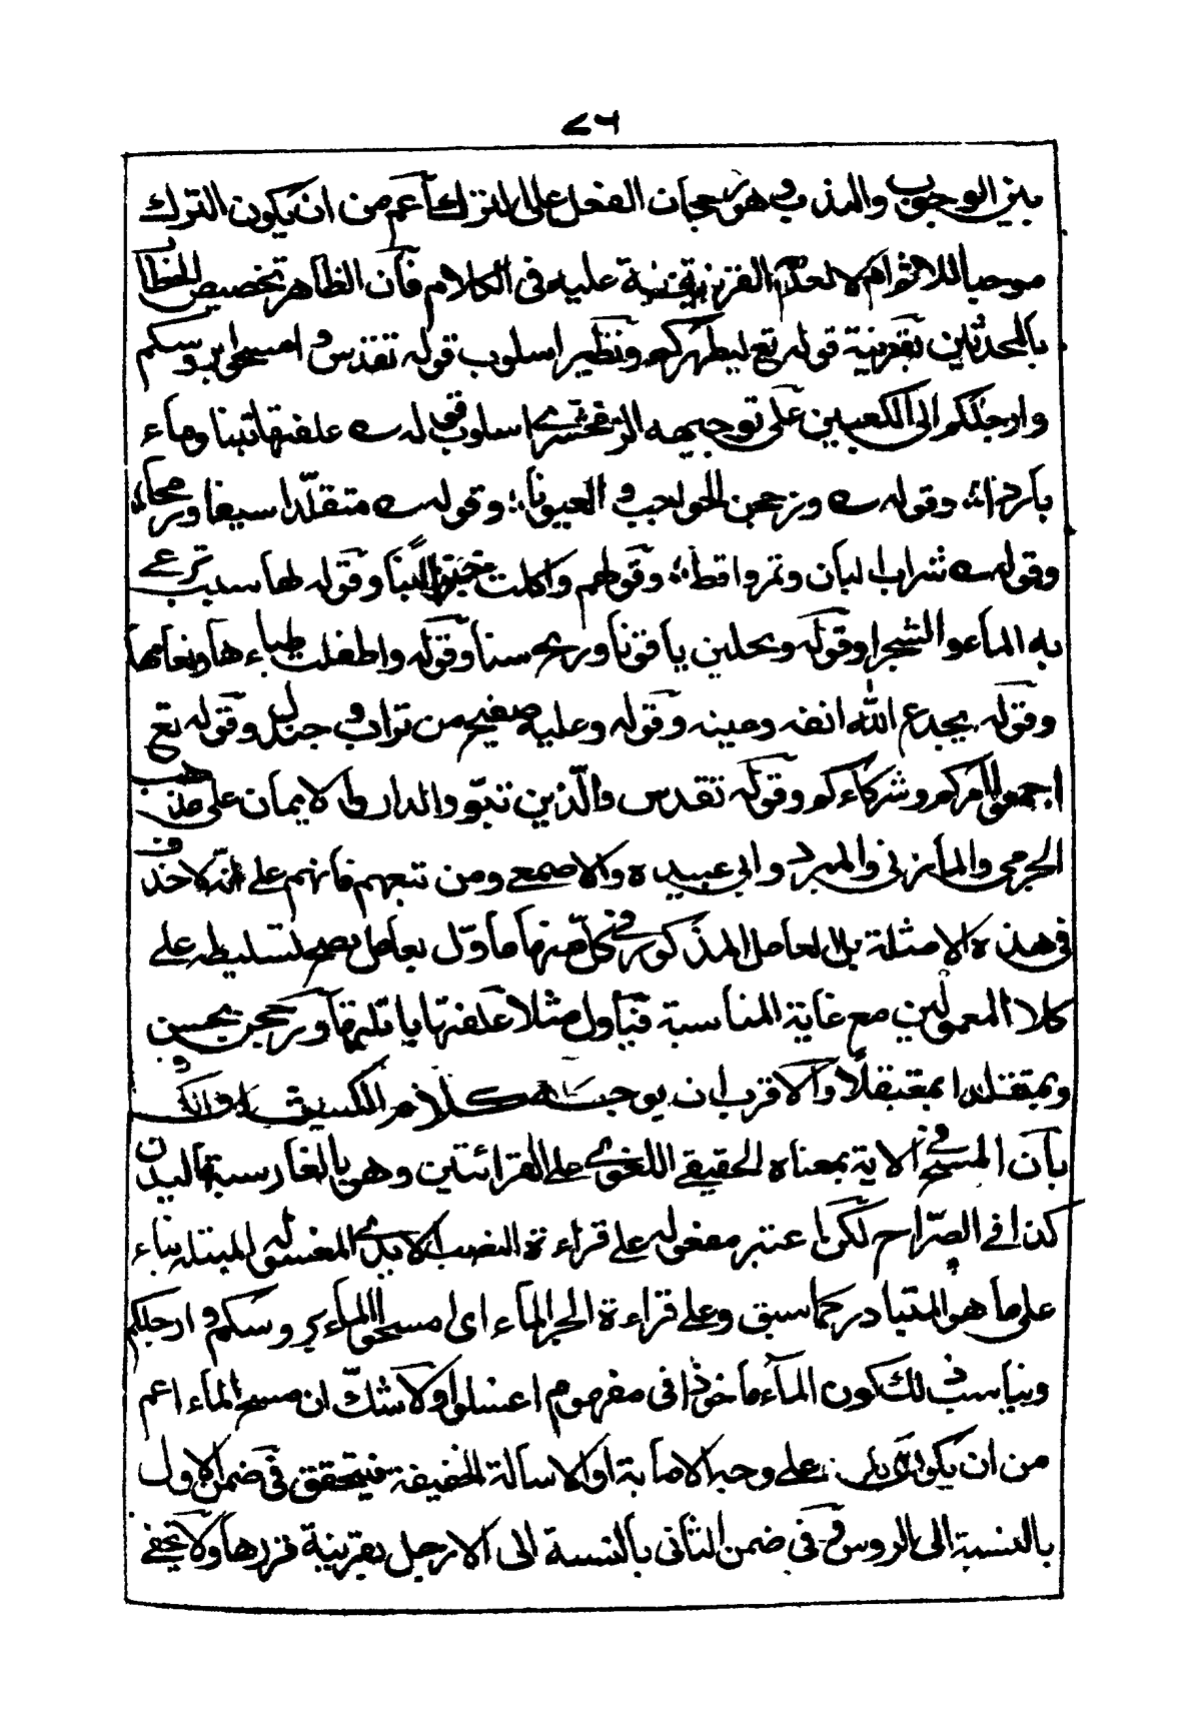 ٧٦
بين الوجوب والندب وهو رجحان الفعل على الترك اعم من ان يكون الترك
موجبا للاثم ام لا لعدم القرينة عليه في الكلام فان الظاهر تخصيص الخطاب
بالمحدثين بقرينة قوله تع ليطهركم ونظير اسلوب قوله تقدس وامسحوا بروسكم
وارجلكم الى الكعبين على توجيه الزمخشري اسلوب قوله علفتها تبنا وماء
باردا وقوله وزججن الحواجب والعيونا وقوله متقلدا سيفا ورمحا
وقوله شراب البان وتمر واقط وقولهم واكلت خبزا لبنا وقوله لها سبب ترعى
به الماء والشجرا وقوله ويحلين ياقوتا وريح سنا وقوله واطفلت ظباءها ونعامها
وقوله يجدع الله انفه وعينه وقوله وعليه صفيح من تراب وجندل وقوله تع
اجمعوا امركم وشركاءكم وقوله تقدس والذين تبوؤ الدار والايمان على مذهب
الجرمي والمازني والمبرد وابي عبيدة والاصمعي ومن تبعهم فانهم على انه لا حذف
في هذه الامثلة بل العامل المذكور في كل منها ماول بعامل يصح تسليطه على
كلا المعمولين مع غاية المناسبة فيأول مثلا علفتها بانلتها وزججن بحسن
وبمتقلدا بمعتقلا والاقرب ان يوجب كلام
بان المسح في الاية بمعناه الحقيقي اللغوي على القرائتين وهو بالفارسية ماليدن
كذا في الصراح لكن اعتبر مفعوله على قراءة النصب الايدي المغسولة المبتلة بناء
على ما هو المتبادر مما سبق وعلى قراءة الجر الماء اي امسحوا الماء بروسكم وارجلكم
ويناسب ذلك كون الماء ماخوذا في مفهوم اغسلوا ولا شك ان مسح الماء اعم
من ان يكون على وجه الاصابة او الاسالة الخفيفة فيتحقق في ضمن الاول
بالنسبة الى الروس وفي ضمن الثاني بالنسبة الى الارجل بقرينة ولا يخفى